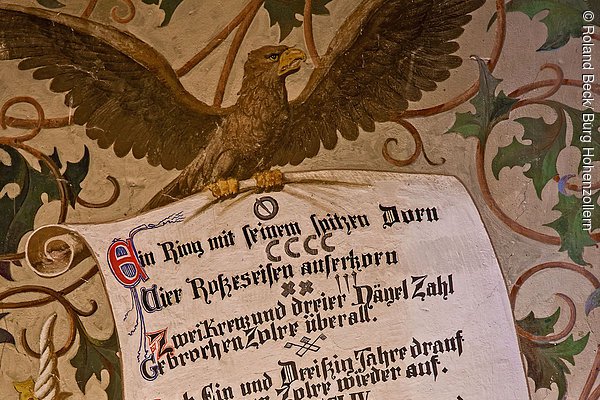 Ein Ring mit seinem spitzen Dorn
Vier Roßeseisen auserkorn
Zwei Kreuz und dreier Nägel Zahl
Gebrochen Zolre überall.
Ein und Dreißig Jahre drauf
Zolre wieder auf.
© Roland Beck, Burg Hohenzollern